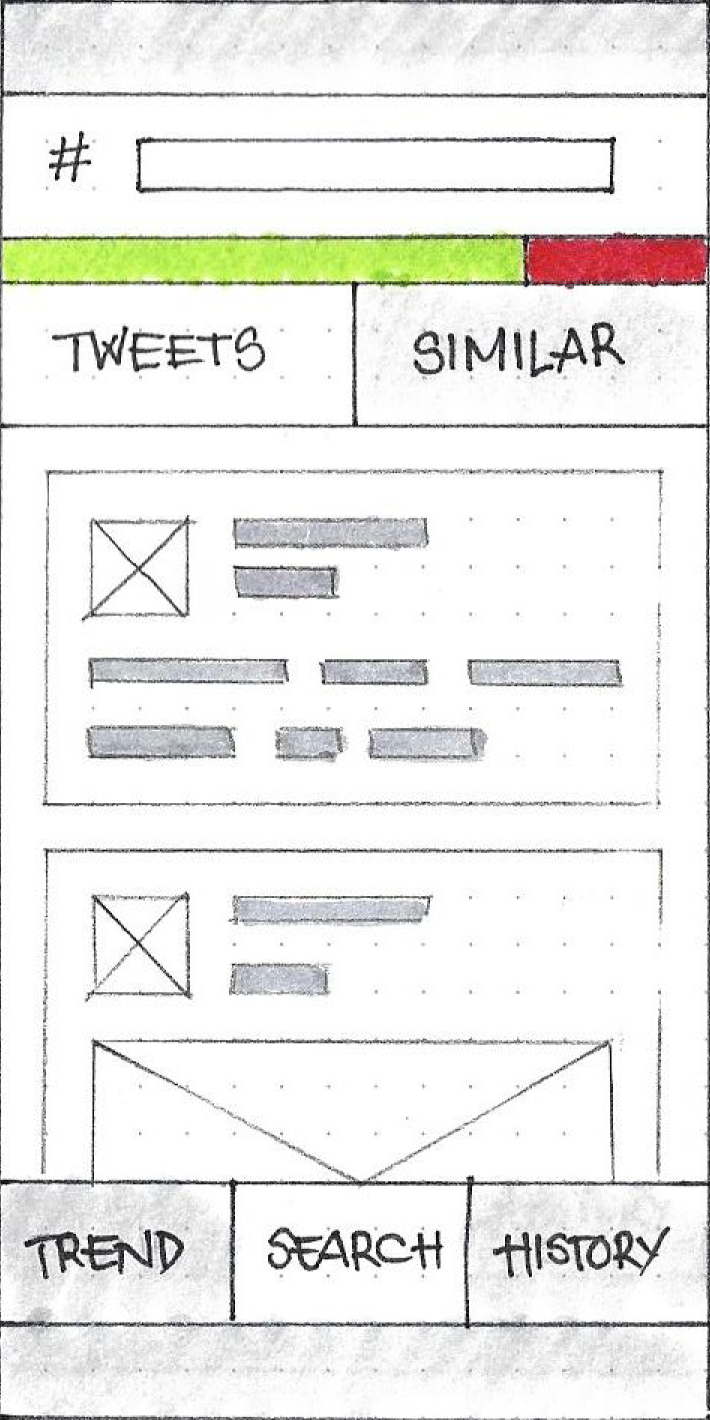 #
TWEETS SIMILAR
TREND SEARCH HISTORY